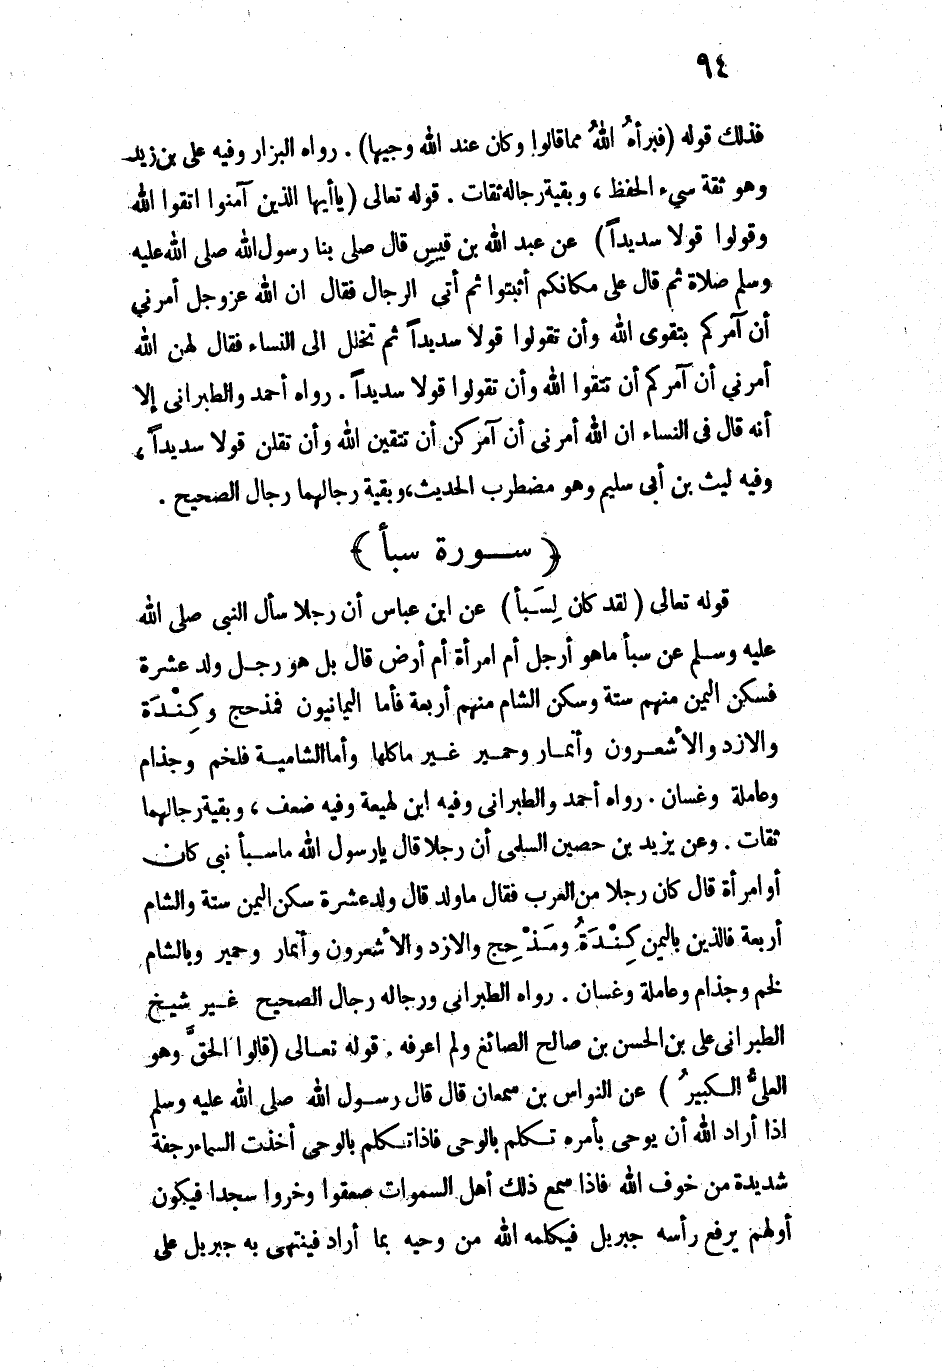 ٩٤
فذلك قوله (فبرأهُ اللهُ مما قالوا وكان عند الله وجيها) . رواه البزار وفيه على بن زيد
وهو ثقة سيء الحفظ ، وبقية رجاله ثقات . قوله تعالى (ياأيها الذين آمنوا اتقوا الله
وقولوا قولا سديداً) عن عبد الله بن قيس قال صلى بنا رسول الله صلى الله عليه
وسلم صلاة ثم قال على مكانكم أثبتوا ثم أتى الرجال فقال ان الله عزوجل أمرني
أن آمركم بتقوى الله وأن تقولوا قولا سديداً ثم تخلل الى النساء فقال لهن الله
أمرني أن آمركم أن تتقوا الله وأن تقولوا قولا سديداً . رواه أحمد والطبرانى إلا
أنه قال فى النساء ان الله أمرنى أن آمركن أن تتقين الله وأن تقلن قولا سديداً ،
وفيه ليث بن أبى سليم وهو مضطرب الحديث، وبقية رجالهما رجال الصحيح .
﴿ ســورة سبأ ﴾
قوله تعالى ( لقد كان لِسَبأ ) عن ابن عباس أن رجلا سأل النبى صلى الله
عليه وسلم عن سبأ ماهو أرجل أم امرأة أم أرض قال بل هو رجل ولد عشرة
فسكن اليمن منهم ستة وسكن الشام منهم أربعة فأما اليمانيون فمذحج وكِنْدَة
والازد والأشعرون وأنمار وحمير غير ماكلها وأما الشامية فلخم وجذام
وعاملة وغسان . رواه أحمد والطبرانى وفيه ابن لهيعة وفيه ضعف ، وبقية رجالهما
ثقات . وعن يزيد بن حصين السلمى أن رجلا قال يارسول الله ماسبأ نبى كان
أو امرأة قال كان رجلا من العرب فقال ماولد قال ولد عشرة سكن اليمن ستة والشام
أربعة فالذين باليمن كِنْدَةُ ومَذْحِج والازد والأشعرون وأنمار وحمير وبالشام
لخم وجذام وعاملة وغسان . رواه الطبرانى ورجاله رجال الصحيح غير شيخ
الطبرانى على بن الحسن بن صالح الصائغ ولم اعرفه . قوله تعالى (قالوا الحقَّ وهو
العلىُّ الكبيرُ ) عن النواس بن سمعان قال قال رسول الله صلى الله عليه وسلم
اذا أراد الله أن يوحى بأمره تكلم بالوحى فاذا تكلم بالوحى أخذت السماء رجفة
شديدة من خوف الله فاذا سمع ذلك أهل السموات صعقوا وخروا سجدا فيكون
أولهم يرفع رأسه جبريل فيكلمه الله من وحيه بما أراد فينتهى به جبريل على